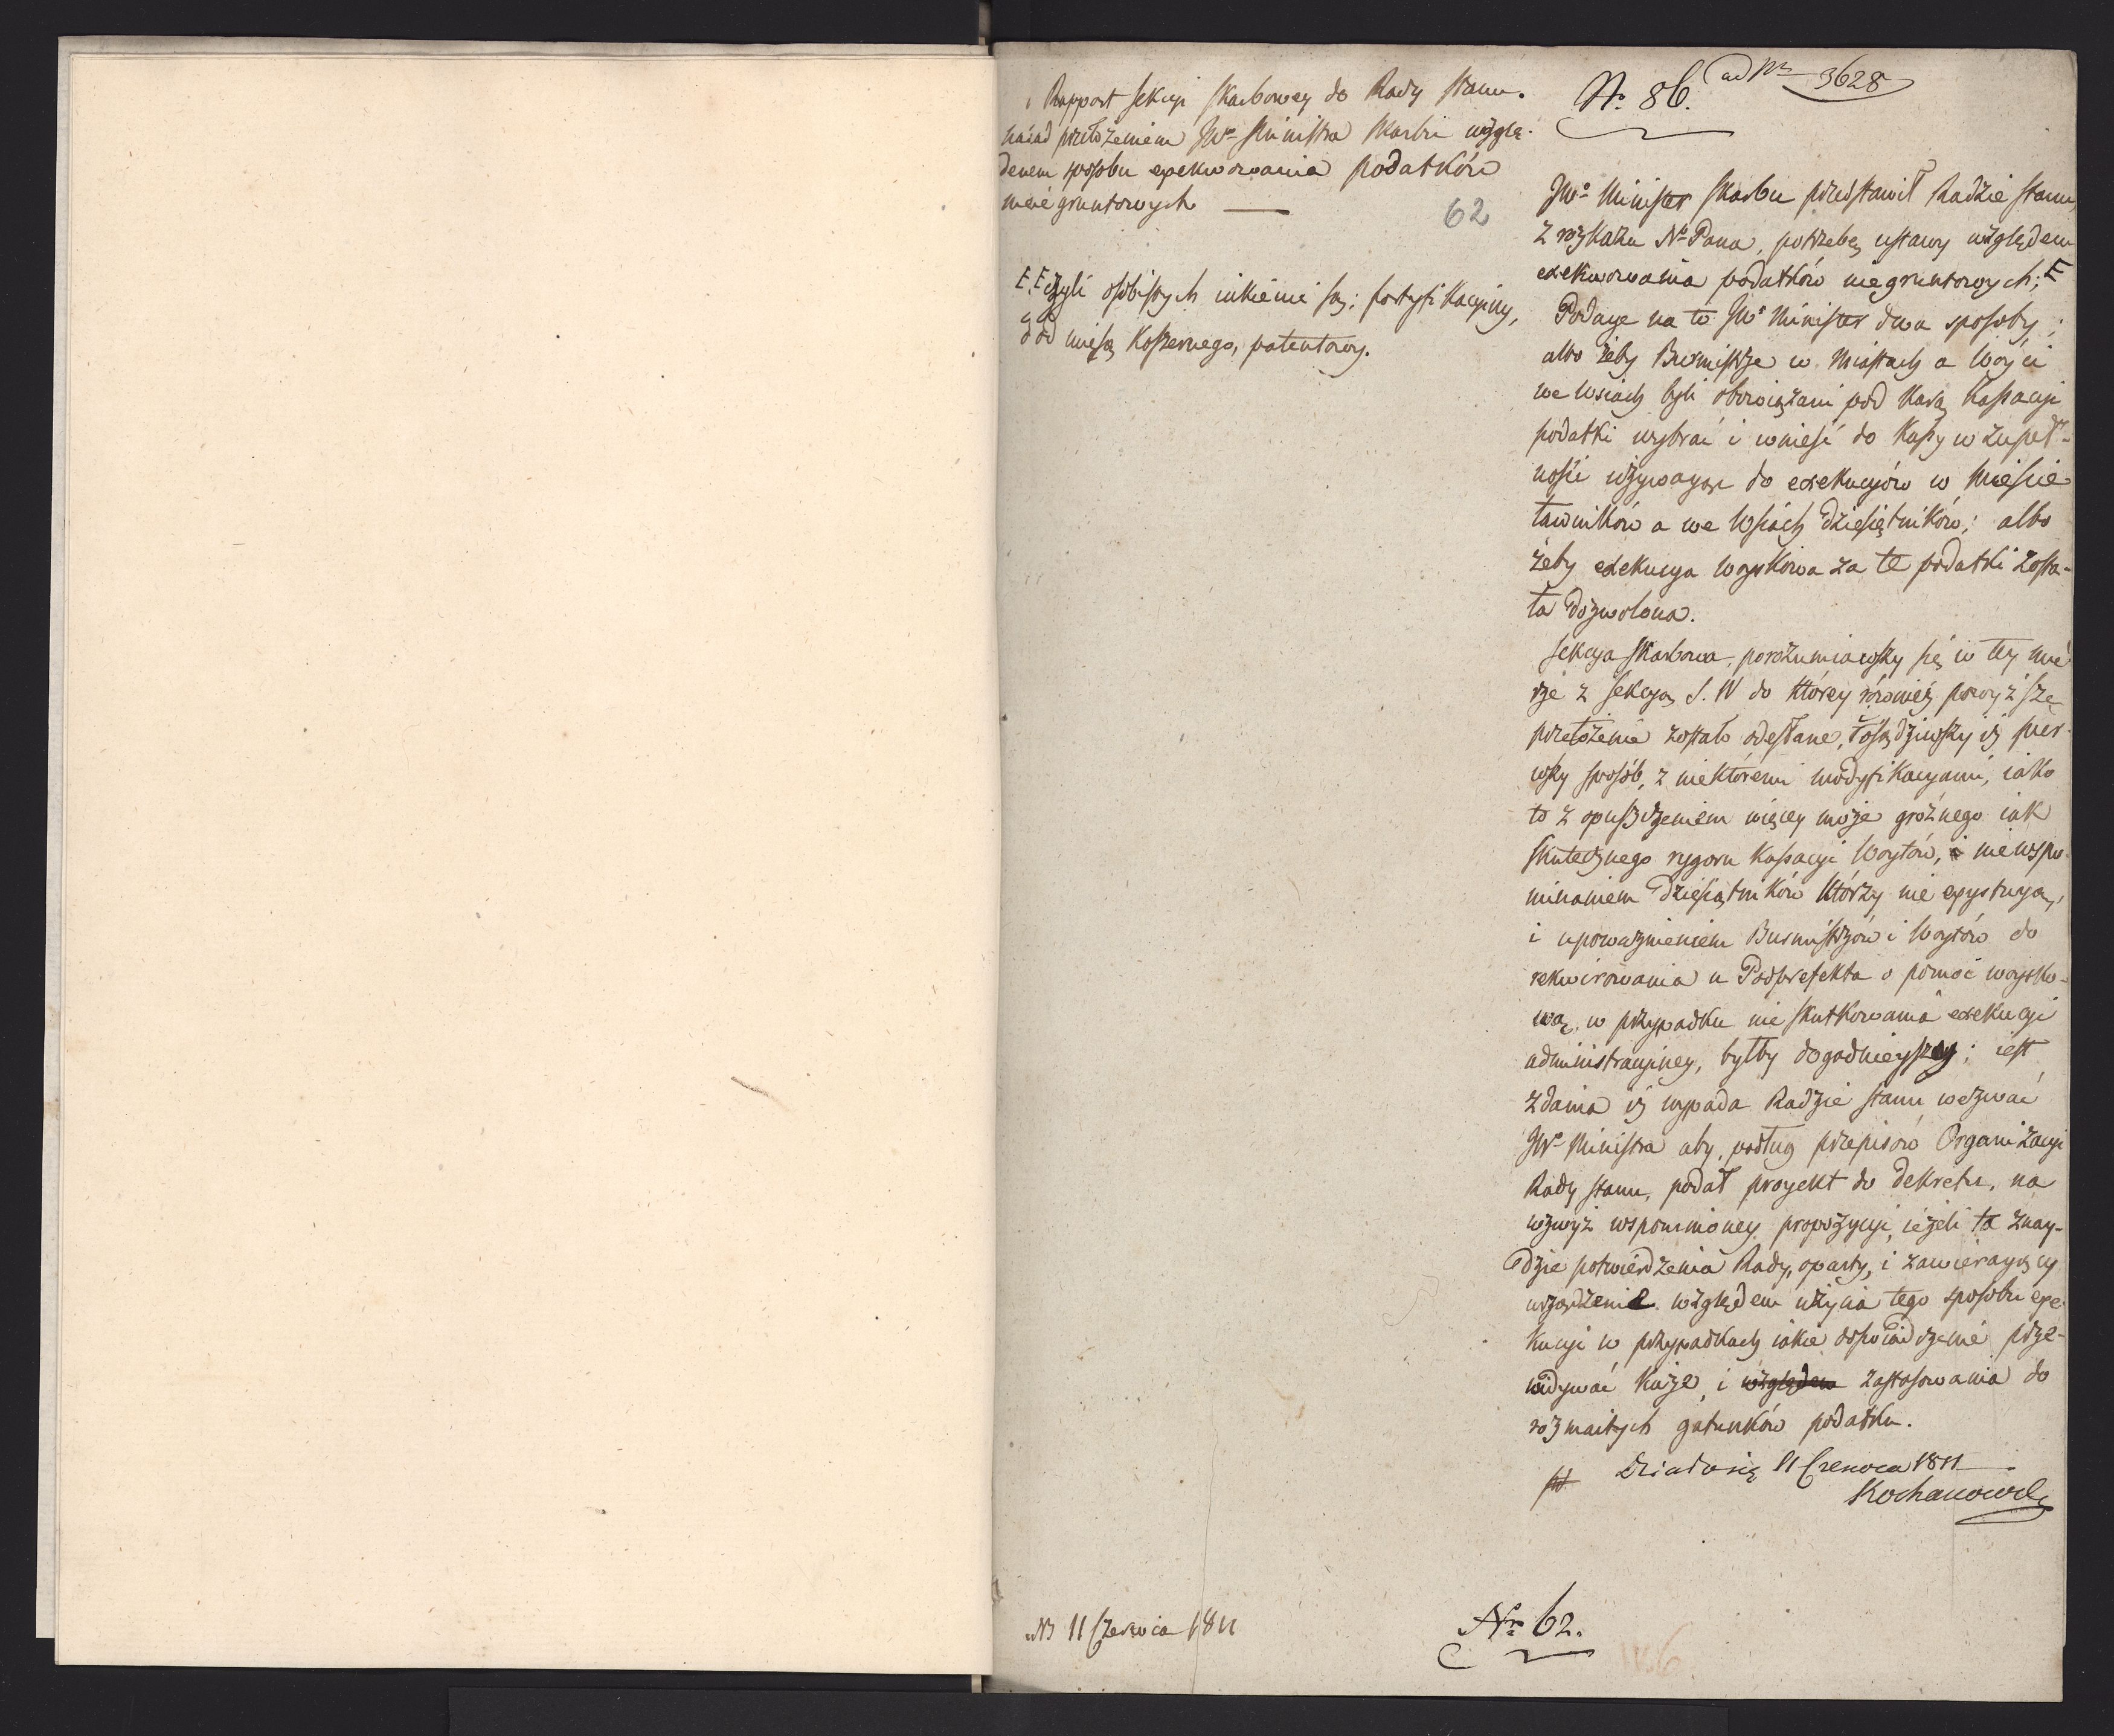 Rapport Sekcyi Skarbowey do Rady Stanu.
nad przełożeniem JWo Ministra Skarbu wzglę-
dem sposobu exekwowania podatków
niegruntowych
62
F. F czyli osobistych iakiemi są: fortyfikacyiny,
od mięsa koszernego, patentowy.
Nr. 86. ad Nr 3628
JWo Minister Skarbu przedstawił Radzie Stanu,
z rozkazu No Pana, potrzebę ustawy względem
exekwowania podatków niegruntowych; F
Podaye na to JWo Minister dwa sposoby;
albo żeby Burmistrze w Miastach a Woyci
we wsiach byli obowiązani pod karą kassacyi
podatki wybrać i wnieść do Kassy w zupeł-
ności używaiąc do exekucyów w Mieście
ławników a we wsiach dziesiętników; albo
żeby exekucya woyskowa za te podatki zosta-
ła dozwolona.
Sekcya Skarbowa, porozumiawszy się w tey mie-
rze z Sekcyą S. W do którey również powyższe
przełożenie zostało odesłane, osądziwszy iż pier-
wszy sposób, z niektóremi modyfikacyami, iako
to z opuszczeniem więcey może groźnego iak
skutecznego rygoru kassacyi Woytów, niewspo-
minaniem dziesiątników którzy nie exystuyą,
i upoważnieniem Burmistrzów i Woytów do
rekwirowania u Podprefekta o pomoc woysko-
wą, w przypadku nie skutkowania exekucyi
administracyiney, byłby dogodnieyszy; iest
zdania iż wypada Radzie Stanu wezwać
JWo Ministra aby, podług przepisów Organizacyi
Rady Stanu, podał proyekt do dekretu, na
wzwyż wspomnioney propozycyi, ieżeli ta znay-
dzie potwierdzenia Rady, oparty, i zawieraiący
urządzenie względem użycia tego sposobu exe-
kucyi w przypadkach iakie doświadczenie prze-
widywać każe, i względem zastosowania do
rozmaitych gatunków podatku.
Działo się 11 Czerwca 1811
Kochanowski
11 Czerwca 1811
Nr. 62.